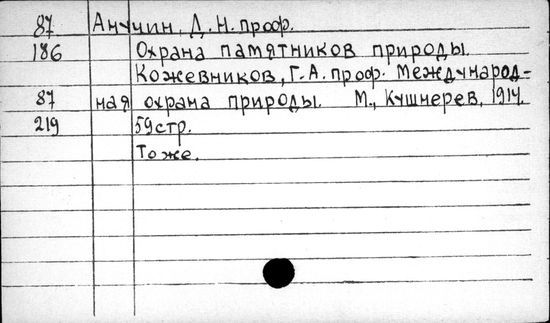 87 Анучин, Д. Н. проф.
186 Охрана памятников природы.
Кожевников, Г. А. проф. Международ-
87 ная охрана природы. М., Кушнерев, 1914.
219 59стр.
Тоже.